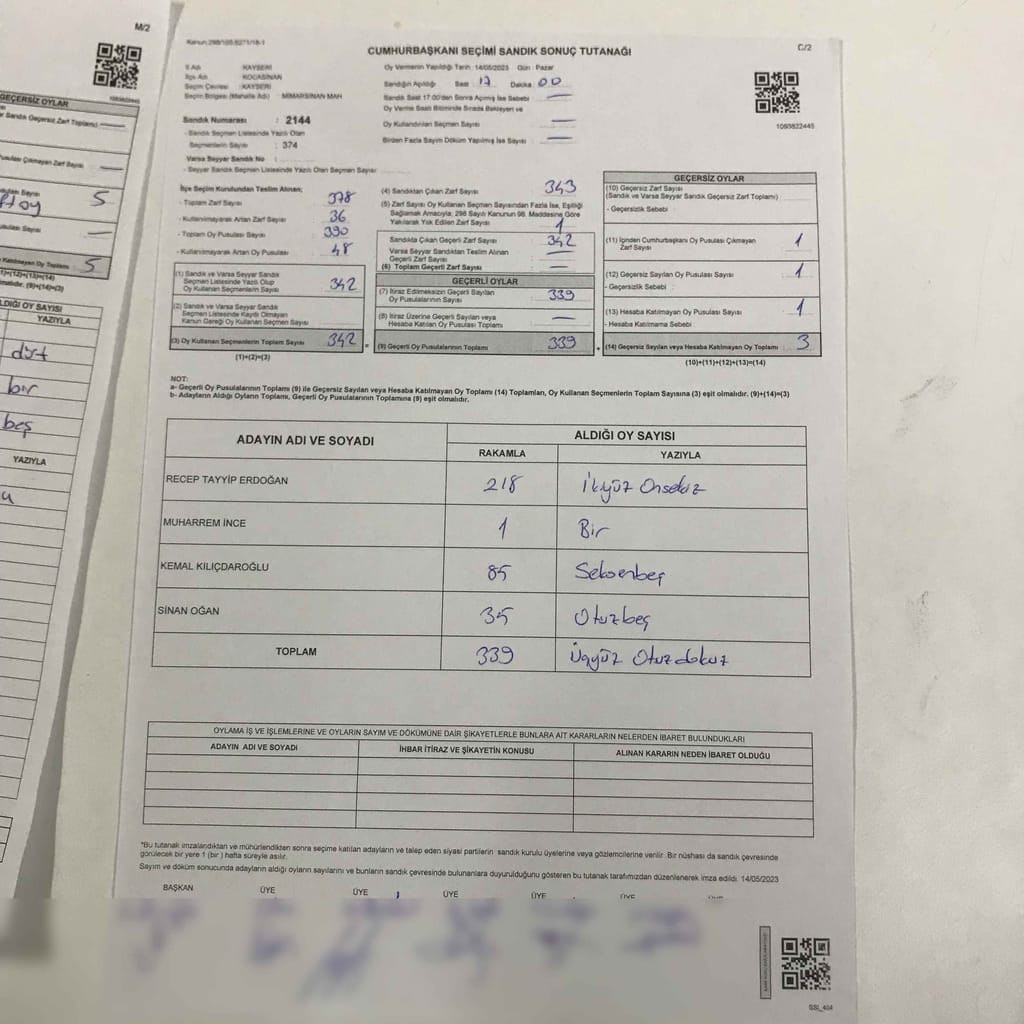 M/2
GEÇERSİZ OYLAR
5
5
YAZIYLA
bir
beş
YAZIYLA
C/2
CUMHURBAŞKANI SEÇİMİ SANDIK SONUÇ TUTANAĞI
İl Adı : KAYSERİ
İlçe Adı : KOCASİNAN
Seçim Çevresi : KAYSERİ
Seçim Bölgesi (Mahalle Adı) : MİMARSİNAN MAH
Oy Vermenin Yapıldığı Tarih : 14/05/2023 Gün : Pazar
Sandığın Açıldığı Saat 17 Dakika 00
Sandık Saat 17:00'den Sonra Açılmış İse Sebebi
Oy Verme Saati Bitiminde Sırada Bekleyen ve
Oy Kullandırılan Seçmen Sayısı
Birden Fazla Sayım Döküm Yapılmış İse Sayısı
1093822445
Sandık Numarası : 2144
- Sandık Seçmen Listesinde Yazılı Olan
Seçmenlerin Sayısı : 374
Varsa Seyyar Sandık No :
- Seyyar Sandık Seçmen Listesinde Yazılı Olan Seçmen Sayısı
İlçe Seçim Kurulundan Teslim Alınan;
- Toplam Zarf Sayısı 378
- Kullanılmayarak Artan Zarf Sayısı 36
- Toplam Oy Pusulası Sayısı 390
- Kullanılmayarak Artan Oy Pusulası 48
(1) Sandık ve Varsa Seyyar Sandık
Seçmen Listesinde Yazılı Olup
Oy Kullanan Seçmenlerin Sayısı 342
(2) Sandık ve Varsa Seyyar Sandık
Seçmen Listesinde Kaydı Olmayan
Kanun Gereği Oy Kullanan Seçmen Sayısı
(3) Oy Kullanan Seçmenlerin Toplam Sayısı 342
(1)+(2)=(3)
(4) Sandıktan Çıkan Zarf Sayısı 343
(5) Zarf Sayısı Oy Kullanan Seçmen Sayısından Fazla İse, Eşitliği
Sağlamak Amacıyla, 298 Sayılı Kanunun 98. Maddesine Göre
Yakılarak Yok Edilen Zarf Sayısı 1
Sandıkta Çıkan Geçerli Zarf Sayısı 342
Varsa Seyyar Sandıktan Teslim Alınan
Geçerli Zarf Sayısı
(6) Toplam Geçerli Zarf Sayısı
GEÇERLİ OYLAR
(7) İtiraz Edilmeksizin Geçerli Sayılan
Oy Pusulalarının Sayısı 339
(8) İtiraz Üzerine Geçerli Sayılan veya
Hesaba Katılan Oy Pusulası Toplamı
(9) Geçerli Oy Pusulalarının Toplamı 339
GEÇERSİZ OYLAR
(10) Geçersiz Zarf Sayısı
(Sandık ve Varsa Seyyar Sandık Geçersiz Zarf Toplamı)
- Geçersizlik Sebebi :
(11) İçinden Cumhurbaşkanı Oy Pusulası Çıkmayan
Zarf Sayısı 1
(12) Geçersiz Sayılan Oy Pusulası Sayısı 1
- Geçersizlik Sebebi :
(13) Hesaba Katılmayan Oy Pusulası Sayısı 1
- Hesaba Katılmama Sebebi
(14) Geçersiz Sayılan veya Hesaba Katılmayan Oy Toplamı 3
(10)+(11)+(12)+(13)=(14)
NOT:
a- Geçerli Oy Pusulalarının Toplamı (9) ile Geçersiz Sayılan veya Hesaba Katılmayan Oy Toplamı (14) Toplamları, Oy Kullanan Seçmenlerin Toplam Sayısına (3) eşit olmalıdır. (9)+(14)=(3)
b- Adayların Aldığı Oyların Toplamı, Geçerli Oy Pusulalarının Toplamına (9) eşit olmalıdır.
ADAYIN ADI VE SOYADI ALDIĞI OY SAYISI
RAKAMLA YAZIYLA
RECEP TAYYİP ERDOĞAN 218 İkiyüz Onsekiz
MUHARREM İNCE 1 Bir
KEMAL KILIÇDAROĞLU 85 Seksenbeş
SİNAN OĞAN 35 Otuzbeş
TOPLAM 339 Üçyüz Otuzdokuz
OYLAMA İŞ VE İŞLEMLERİNE VE OYLARIN SAYIM VE DÖKÜMÜNE DAİR ŞİKAYETLERLE BUNLARA AİT KARARLARIN NELERDEN İBARET BULUNDUKLARI
ADAYIN ADI VE SOYADI İHBAR İTİRAZ VE ŞİKAYETİN KONUSU ALINAN KARARIN NEDEN İBARET OLDUĞU
*Bu tutanak imzalandıktan ve mühürlendikten sonra seçime katılan adayların ve talep eden siyasi partilerin sandık kurulu üyelerine veya gözlemcilerine verilir. Bir nüshası da sandık çevresinde
görülecek bir yere 1 (bir) hafta süreyle asılır.
Sayım ve döküm sonucunda adayların aldığı oyların sayılarını ve bunların sandık çevresinde bulunanlara duyurulduğunu gösteren bu tutanak tarafımızdan düzenlenerek imza edildi. 14/05/2023
BAŞKAN ÜYE ÜYE ÜYE ÜYE ÜYE